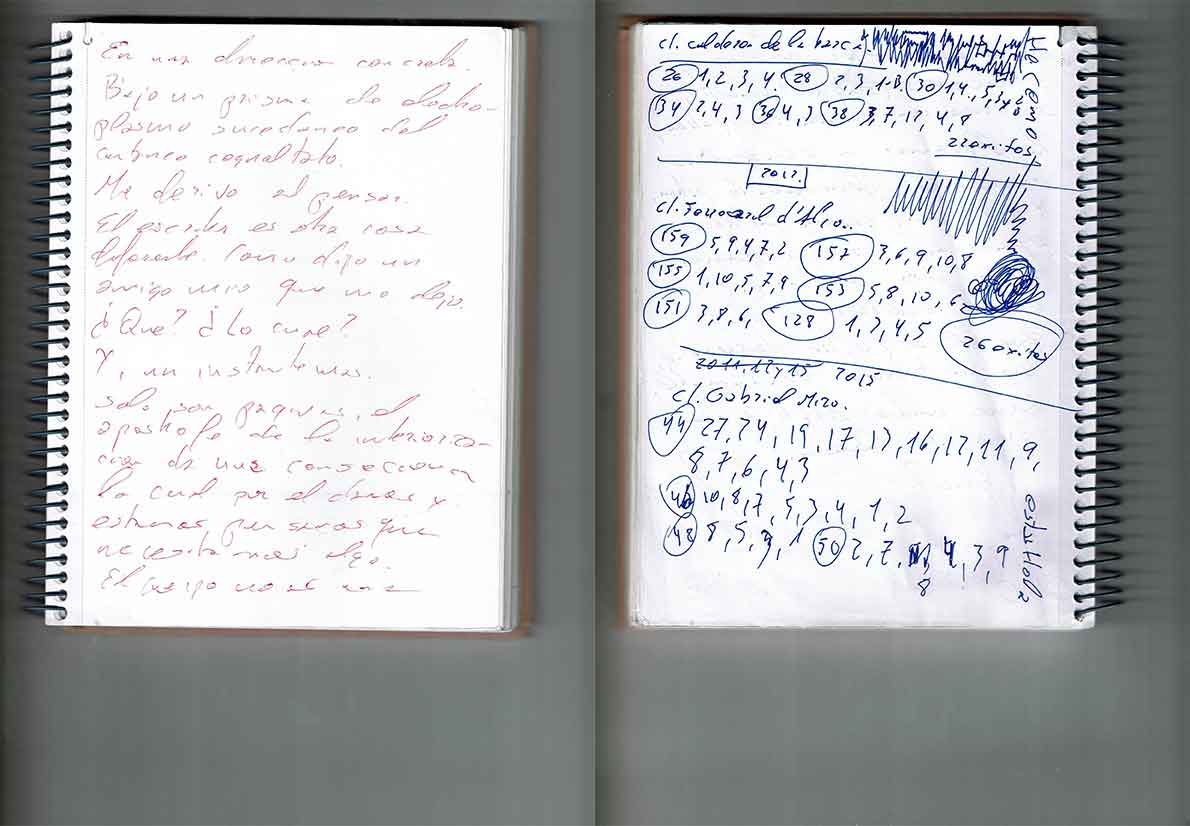 En una direccion concreta.
Bajo un prisma de electro-
plasma sucedaneo del
Me derivo al pensar.
El escribir es otra cosa
diferente. Como dijo un
amigo mio que no dejo.
¿Que? ¿Lo cure?
Y, un instante mas.
solo son paginas, el
apostrofe de la interioriza-
cion de una
la cual por el
estamos que
necesitamos algo.
El cuerpo no es una
cl. calderon de la barca
26 1, 2, 3, 4. 28 2, 3, 1-B. 30 1, 4, 5, 3
34 2, 4, 3 36 4, 3 38 3, 7, 12, 4, 8
22 exitos
2012.
cl. Ferrocarril d'Alco..
159 5, 9, 4, 7, 2 157 3, 6, 9, 10, 8
155 1, 10, 5, 7, 9 153 5, 8, 10, 6
151 3, 8, 6, 128 1, 3, 4, 5
26 exitos
2011, 12 y 15 2015
cl. Gabriel Miro.
44 27, 24, 19, 17, 13, 16, 12, 11, 9,
8, 7, 6, 4, 3
46 10, 8, 7, 5, 3, 4, 1, 2
48 8, 5, 9, 1 50 2, 7, 4, 3, 9
8